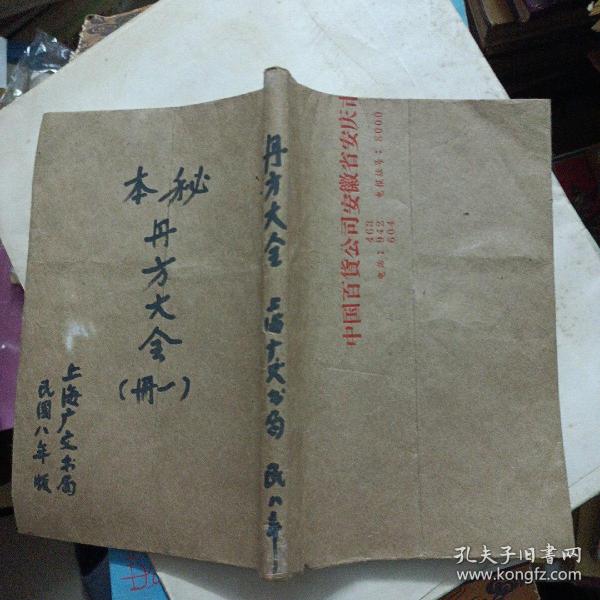 秘本
丹方大全
（一册）
上海广文书局
民国八年版
丹方大全 上海广文书局 民八年
中国百货公司安徽省安庆司
电话：
463
942
604
电报挂号：8000
孔夫子旧书网
www.kongfz.com